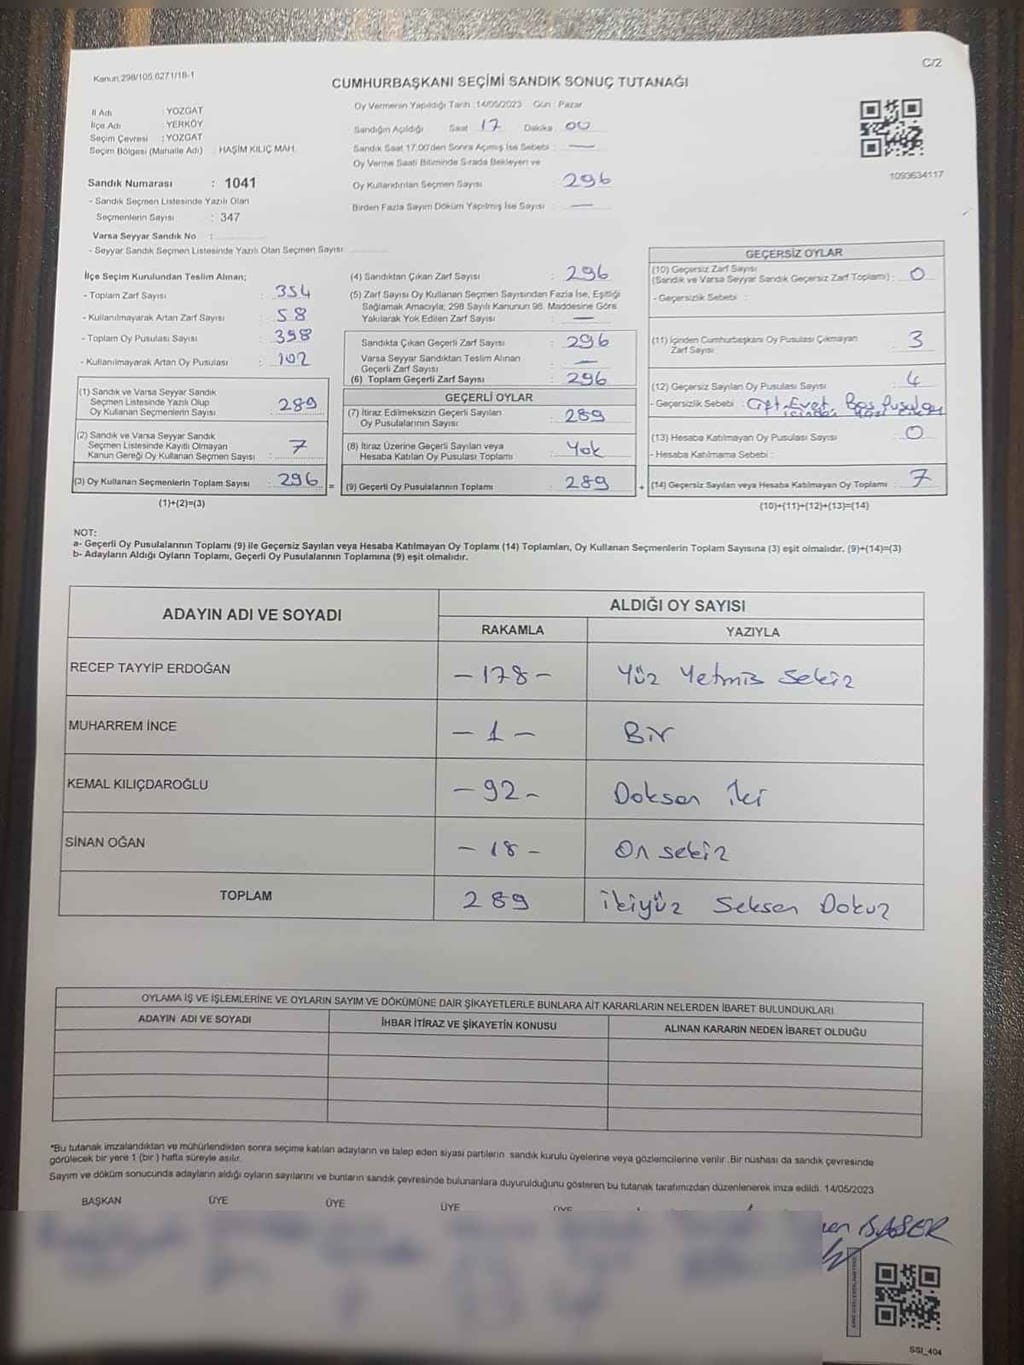 Kanun:298/105,6271/18-1
C/2
CUMHURBAŞKANI SEÇİMİ SANDIK SONUÇ TUTANAĞI
İl Adı : YOZGAT
İlçe Adı : YERKÖY
Seçim Çevresi : YOZGAT
Seçim Bölgesi (Mahalle Adı) : HAŞİM KILIÇ MAH.
Sandık Numarası : 1041
- Sandık Seçmen Listesinde Yazılı Olan
Seçmenlerin Sayısı : 347
Varsa Seyyar Sandık No :
- Seyyar Sandık Seçmen Listesinde Yazılı Olan Seçmen Sayısı:
Oy Vermenin Yapıldığı Tarih :14/05/2023 Gün : Pazar
Sandığın Açıldığı Saat 17 Dakika 00
Sandık Saat 17:00'den Sonra Açılmış İse Sebebi : —
Oy Verme Saati Bitiminde Sırada Bekleyen ve
Oy Kullandırılan Seçmen Sayısı : 296
Birden Fazla Sayım Döküm Yapılmış İse Sayısı : —
1093634117
İlçe Seçim Kurulundan Teslim Alınan;
- Toplam Zarf Sayısı : 354
- Kullanılmayarak Artan Zarf Sayısı : 58
- Toplam Oy Pusulası Sayısı : 398
- Kullanılmayarak Artan Oy Pusulası : 102
(1) Sandık ve Varsa Seyyar Sandık
Seçmen Listesinde Yazılı Olup
Oy Kullanan Seçmenlerin Sayısı : 289
(2) Sandık ve Varsa Seyyar Sandık
Seçmen Listesinde Kayıtlı Olmayan
Kanun Gereği Oy Kullanan Seçmen Sayısı : 7
(3) Oy Kullanan Seçmenlerin Toplam Sayısı : 296
(1)+(2)=(3)
(4) Sandıktan Çıkan Zarf Sayısı : 296
(5) Zarf Sayısı Oy Kullanan Seçmen Sayısından Fazla İse, Eşitliği
Sağlamak Amacıyla; 298 Sayılı Kanunun 98. Maddesine Göre
Yakılarak Yok Edilen Zarf Sayısı : —
Sandıkta Çıkan Geçerli Zarf Sayısı : 296
Varsa Seyyar Sandıktan Teslim Alınan
Geçerli Zarf Sayısı : —
(6) Toplam Geçerli Zarf Sayısı : 296
GEÇERLİ OYLAR
(7) İtiraz Edilmeksizin Geçerli Sayılan
Oy Pusulalarının Sayısı : 289
(8) İtiraz Üzerine Geçerli Sayılan veya
Hesaba Katılan Oy Pusulası Toplamı : Yok
= (9) Geçerli Oy Pusulalarının Toplamı : 289
GEÇERSİZ OYLAR
(10) Geçersiz Zarf Sayısı
(Sandık ve Varsa Seyyar Sandık Geçersiz Zarf Toplamı) : 0
- Geçersizlik Sebebi :
(11) İçinden Cumhurbaşkanı Oy Pusulası Çıkmayan
Zarf Sayısı : 3
(12) Geçersiz Sayılan Oy Pusulası Sayısı : 4
- Geçersizlik Sebebi : Çift Evet, Boş Pusula
(13) Hesaba Katılmayan Oy Pusulası Sayısı : 0
- Hesaba Katılmama Sebebi :
+ (14) Geçersiz Sayılan veya Hesaba Katılmayan Oy Toplamı : 7
(10)+(11)+(12)+(13)=(14)
NOT:
a- Geçerli Oy Pusulalarının Toplamı (9) ile Geçersiz Sayılan veya Hesaba Katılmayan Oy Toplamı (14) Toplamları, Oy Kullanan Seçmenlerin Toplam Sayısına (3) eşit olmalıdır. (9)+(14)=(3)
b- Adayların Aldığı Oyların Toplamı, Geçerli Oy Pusulalarının Toplamına (9) eşit olmalıdır.
ADAYIN ADI VE SOYADI
ALDIĞI OY SAYISI
RAKAMLA YAZIYLA
RECEP TAYYİP ERDOĞAN -178- Yüz Yetmiş Sekiz
MUHARREM İNCE -1- Bir
KEMAL KILIÇDAROĞLU -92- Doksan iki
SİNAN OĞAN -18- On sekiz
TOPLAM 289 ikiyüz Seksen Dokuz
OYLAMA İŞ VE İŞLEMLERİNE VE OYLARIN SAYIM VE DÖKÜMÜNE DAİR ŞİKAYETLERLE BUNLARA AİT KARARLARIN NELERDEN İBARET BULUNDUKLARI
ADAYIN ADI VE SOYADI İHBAR İTİRAZ VE ŞİKAYETİN KONUSU ALINAN KARARIN NEDEN İBARET OLDUĞU
*Bu tutanak imzalandıktan ve mühürlendikten sonra seçime katılan adayların ve talep eden siyasi partilerin sandık kurulu üyelerine veya gözlemcilerine verilir .Bir nüshası da sandık çevresinde
görülecek bir yere 1 (bir ) hafta süreyle asılır.
Sayım ve döküm sonucunda adayların aldığı oyların sayılarını ve bunların sandık çevresinde bulunanlara duyurulduğunu gösteren bu tutanak tarafımızdan düzenlenerek imza edildi. 14/05/2023
BAŞKAN ÜYE ÜYE ÜYE ÜYE
BAŞER
SSI_404